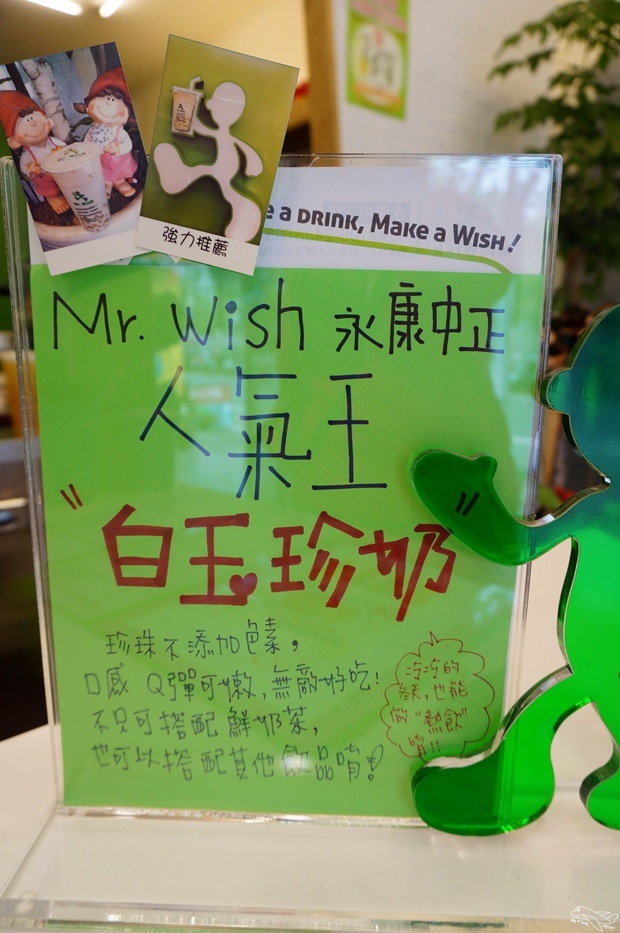 強力推薦
e a DRINK, MAKE a WISH!
Mr. Wish 永康中正
人氣王
"白玉珍奶"
珍珠不添加色素,
口感 Q彈可嫩,無敵好吃!
不只可搭配鮮奶茶,
也可以搭配其他飲品唷!
冷冷的
冬天,也能
做"熱飲"
唷!!